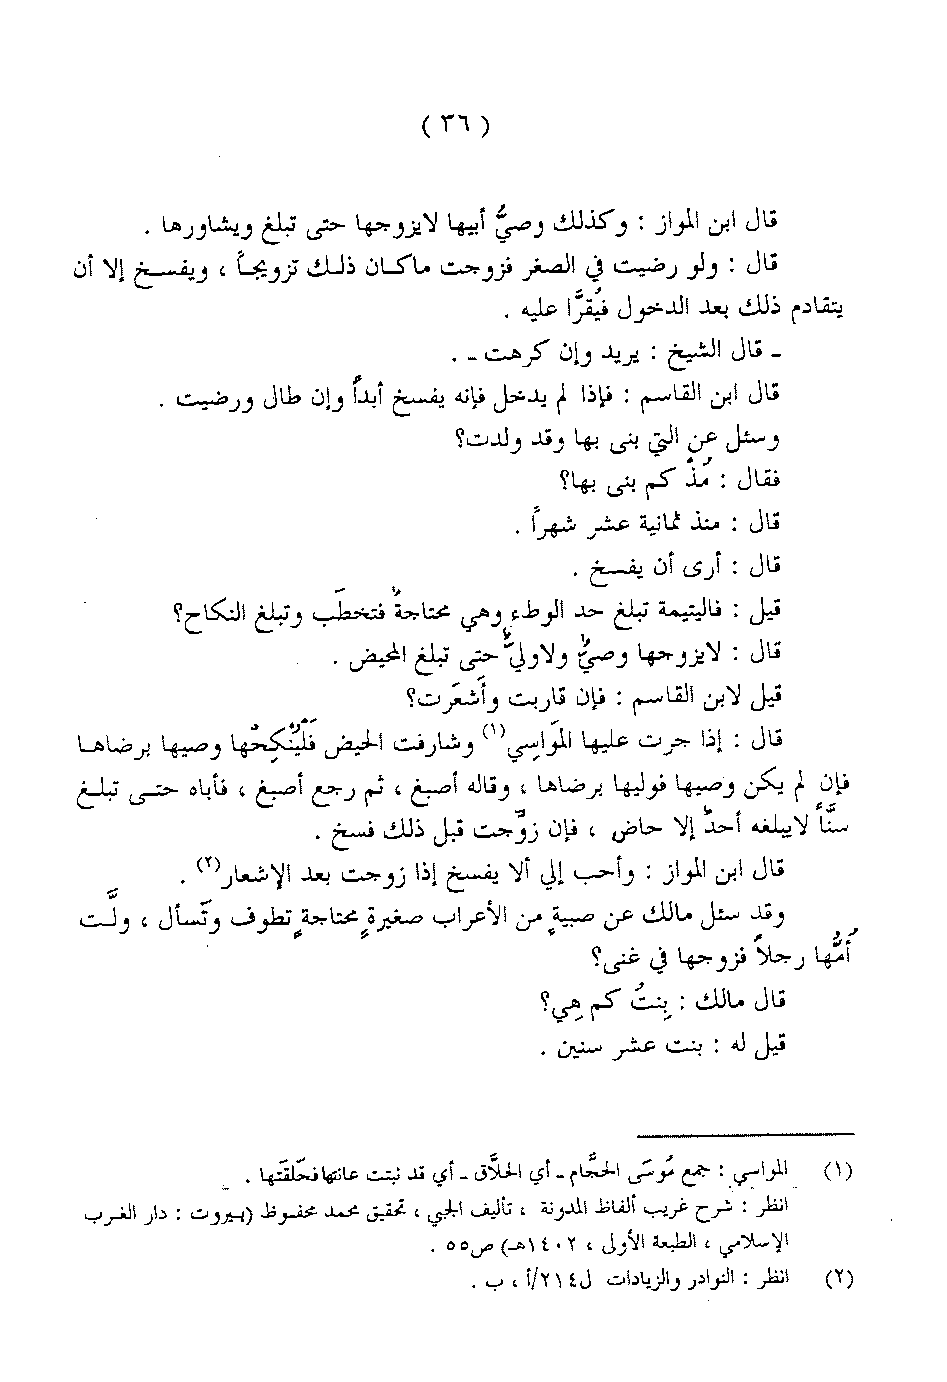 ( ٣٦ )
قال ابن المواز : وكذلك وصيُّ أبيها لايزوجها حتى تبلغ ويشاورها .
قال : ولو رضيت في الصغر فزوجت ماكان ذلك تزويجاً ، ويفسخ إلا أن
يتقادم ذلك بعد الدخول فيُقرَّا عليه .
ـ قال الشيخ : يريد وإن كرهت ـ .
قال ابن القاسم : فإذا لم يدخل فإنه يفسخ أبداً وإن طال ورضيت .
وسئل عن التي بنى بها وقد ولدت؟
فقال : مُذْ كم بنى بها؟
قال : منذ ثمانية عشر شهراً .
قال : أرى أن يفسخ .
قيل : فاليتيمة تبلغ حد الوطء وهي محتاجةٌ فتخطَب وتبلغ النكاح؟
قال : لايزوجها وصيٌّ ولاوليٌّ حتى تبلغ المحيض .
قيل لابن القاسم : فإن قاربت وأَشعَرت؟
قال : إذا جرت عليها المَواسِي(١) وشارفت الحيض فَلْيُنْكِحُها وصيها برضاها
فإن لم يكن وصيها فوليها برضاها ، وقاله أصبغ ، ثم رجع أصبغ ، فأباه حتى تبلغ
سنَّاً لايبلغه أحدٌ إلا حاض ، فإن زوِّجت قبل ذلك فسخ .
قال ابن المواز : وأحب إلي ألا يفسخ إذا زوجت بعد الإشعار(٢) .
وقد سئل مالك عن صبيةٍ من الأعراب صغيرةٍ محتاجةٍ تطوف وتَسأل ، ولَّت
أُمُّها رجلاً فزوجها في غنى؟
قال مالك : بِنتُ كم هِي؟
قيل له : بنت عشر سنين .
(١) المواسي : جمع مُوسَى الحجَّام ـ أي الحلَّاق ـ أي قد نبتت عانتها فحَلَقَتها .
انظر : شرح غريب ألفاظ المدونة ، تأليف الجبي ، تحقيق محمد محفوظ (بيروت : دار الغرب
الإسلامي ، الطبعة الأولى ، ١٤٠٢هـ) ص٥٥ .
(٢) انظر : النوادر والزيادات ل٢١٤/أ ، ب .